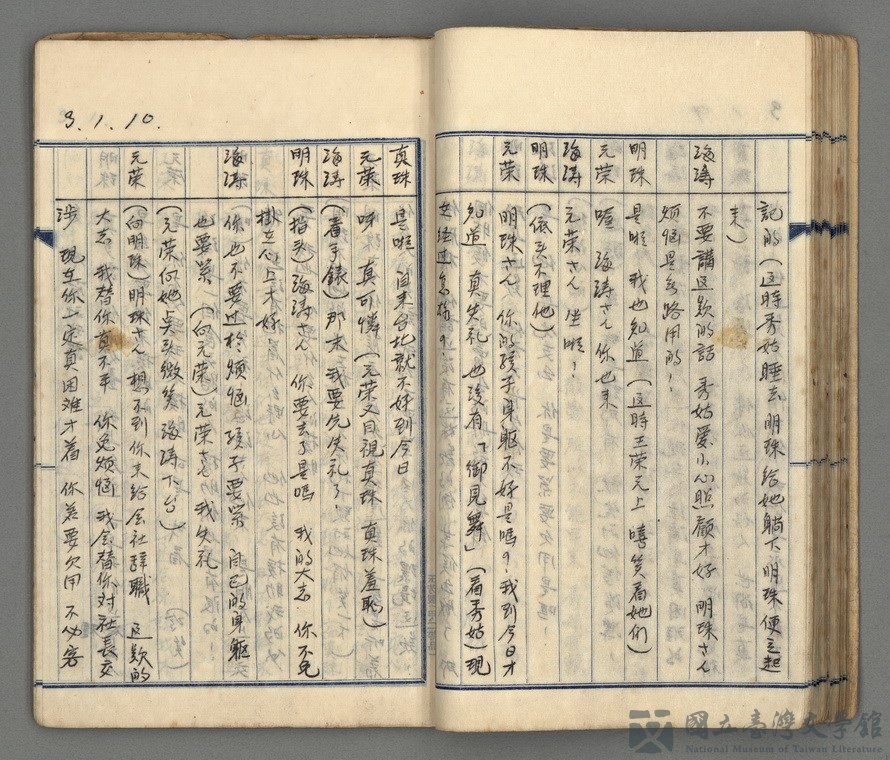 記的(這時秀姑睡去 明珠給她躺下 明珠便立起
來)
海濤 不要講這款的話 秀姑愛小心照顧才好 明珠さん
煩惱是無路用的!
明珠 是啦 我也知道(這時王榮元上 嘻笑着她們)
元荣 喔 海濤さん 你也来
海濤 元荣さん 坐啦!
明珠 (低头不理他)
元荣 明珠さん 你的孩子身軀不好是嗎?我到今日才
知道 真失礼 也沒有「御見舞」(看秀姑)現
在經過怎樣?
3.1.10.
真珠 是啦 自来台北就不好到今日
元荣 呀 真可憐(元荣又目視真珠 真珠羞恥)
海濤 (看手錶)那末 我要先失礼了
明珠 (指头)海濤さん 你要去了是嗎 我的大志 你不免
掛在心上才好
海濤 你也不要过於煩惱 孩子要緊 自己的身軀
也要緊 (向元荣)元荣さん 我失礼
(元荣向她点头微笑 海濤下台)
元荣 (向明珠)明珠さん 想不到你来給会社辞職 這款的
大志 我替你真不平 你免煩惱 我会替你对社長交
涉 現在你一定真困难才着 你若要欠用 不必客
國立臺灣文學館
National Museum of Taiwan Literature